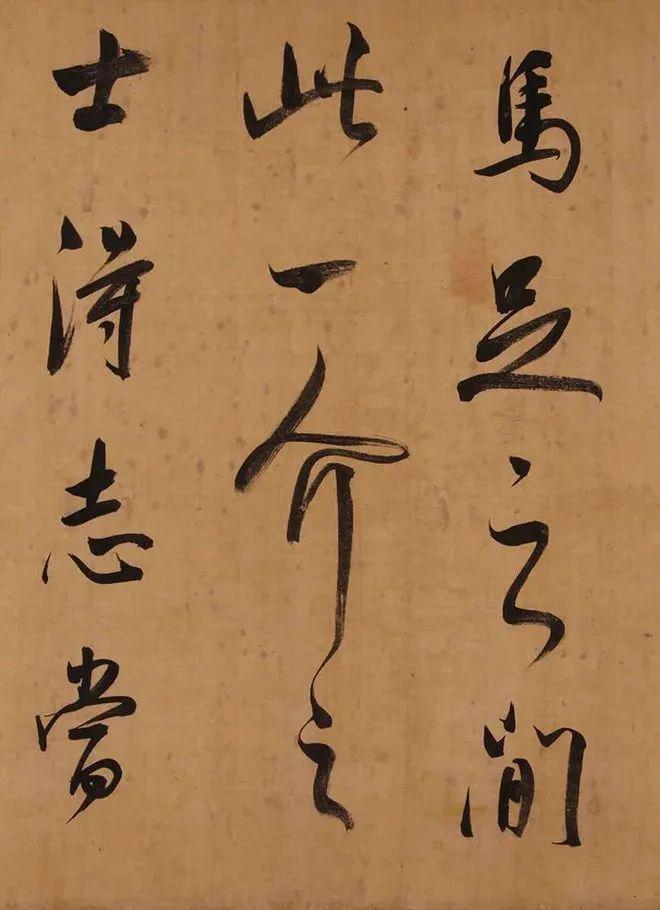 馬足之閒
此一介之
士得志當